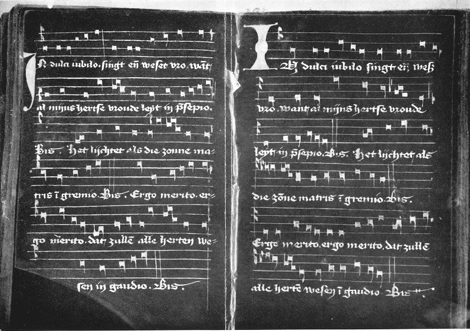 In dulci iubilo. singt eñ weset vro. wāt
al mijns hertse vroude leyt in p̄sepio.
Bis. Het lichtet als die zonne ma-
tris ī gremio. Bis. Ergo merito. er-
go merito. dat zullē alle herten we-
sen in gaudio. Bis.
In dulci iubilo singt eñ weset
vro. want al mijns hertse vroude
leyt in p̄sepio. Bis. Het lichtet als
die zōne matris ī gremio. Bis.
Ergo merito. ergo merito. dat zullē
alle hertē wesen ī gaudio. Bis.